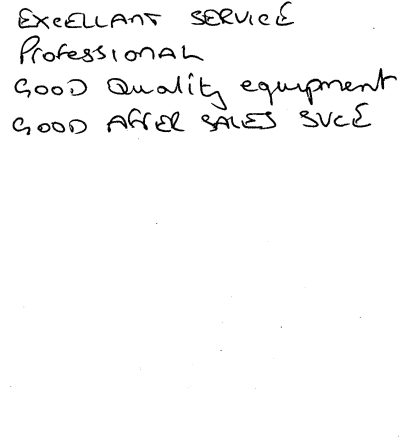 EXCELLANT SERVICE
Professional
GOOD Quality equipment
GOOD AFTER SALES SVCE